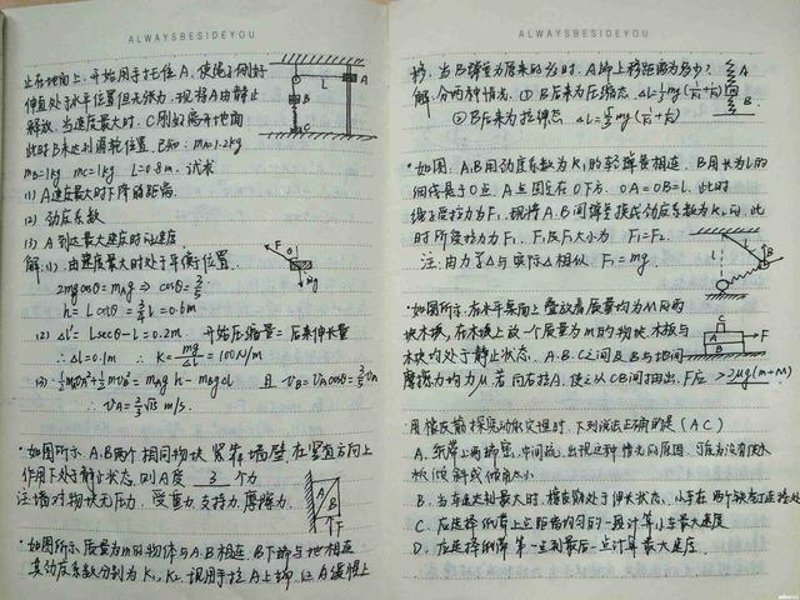 ALWAYSBESIDEYOU
止在地面上.开始用手托住A.使绳子刚好
伸直处于水平位置但无张力.现将A由静止
释放.当速度最大时.C刚好离开地面
此时B未达到滑轮位置.已知:mA=1.2kg
mB=1kg mC=1kg L=0.8m.试求
(1) A速度最大时下降的距离.
(2) 劲度系数
(3) A到达最大速度时的速度
解:(1).由速度最大时处于平衡位置.
2mgcosθ=mAg ⇒ cosθ=3/5
h=Lcosθ=3/4L=0.6m
(2) Δl'=Lsecθ-L=0.2m. 开始压缩量=后来伸长量
∴Δl=0.1m ∴ K=mg/Δl=100N/m
∴ VA= m/s.
·如图所示.A.B两个相同物块 紧靠墙壁.在竖直方向上
作用下处于静止状态.则A受 3 个力
注:墙对物块无压力. 受重力.支持力.摩擦力.
·如图所示.质量为m的物体与A.B相连.B下端与地相连
其劲度系数分别为K₁,K₂.现用手拉A上端.让A缓慢上
L
A
B
C
F
θ
A
B
F
ALWAYSBESIDEYOU
移.当B弹力为原来的2/3时.A端上移距离为多少?
解.分两种情况.① B后来为压缩态. Δl=1/3mg(1/k₁+1/k₂)
②B后来为拉伸态 Δl=5/3mg(1/k₁+1/k₂)
A
B
·如图.A.B用劲度系数为K₁的轻弹簧相连.B用长为L的
细线悬于O点.A点固定在O下方. OA=OB=L.此时
绳子受拉力为F₁.现将A.B间弹簧换成劲度系数为K₂的.此
时所受拉力为F₂. F₁及F₂大小为 F₁=F₂.
注:由力学△与实际△相似. F₁=mg.
·如图所示.在水平桌面上叠放着质量均为M的两
块木板,在木板上放一个质量为m的物块.木板与
木块均处于静止状态. A.B.C之间及B与地间
摩擦力均为μ.若向右拉A.使之从CB间抽出.F应 >2μg(m+M)
C
A
B
F
·用橡皮筋探究动能定理时.下列说法正确的是(AC)
A. 纸带上两端密.中间疏.出现这种情况的原因.可能为没有使木
板倾斜或倾角太小
B. 当车达到最大时.橡皮筋处于伸长状态.小车在两个铁钉连线处
C. 应选择纸带上点距离均匀的一段计算小车最大速度
D. 应选择纸带第一点到最后一点计算最大速度.